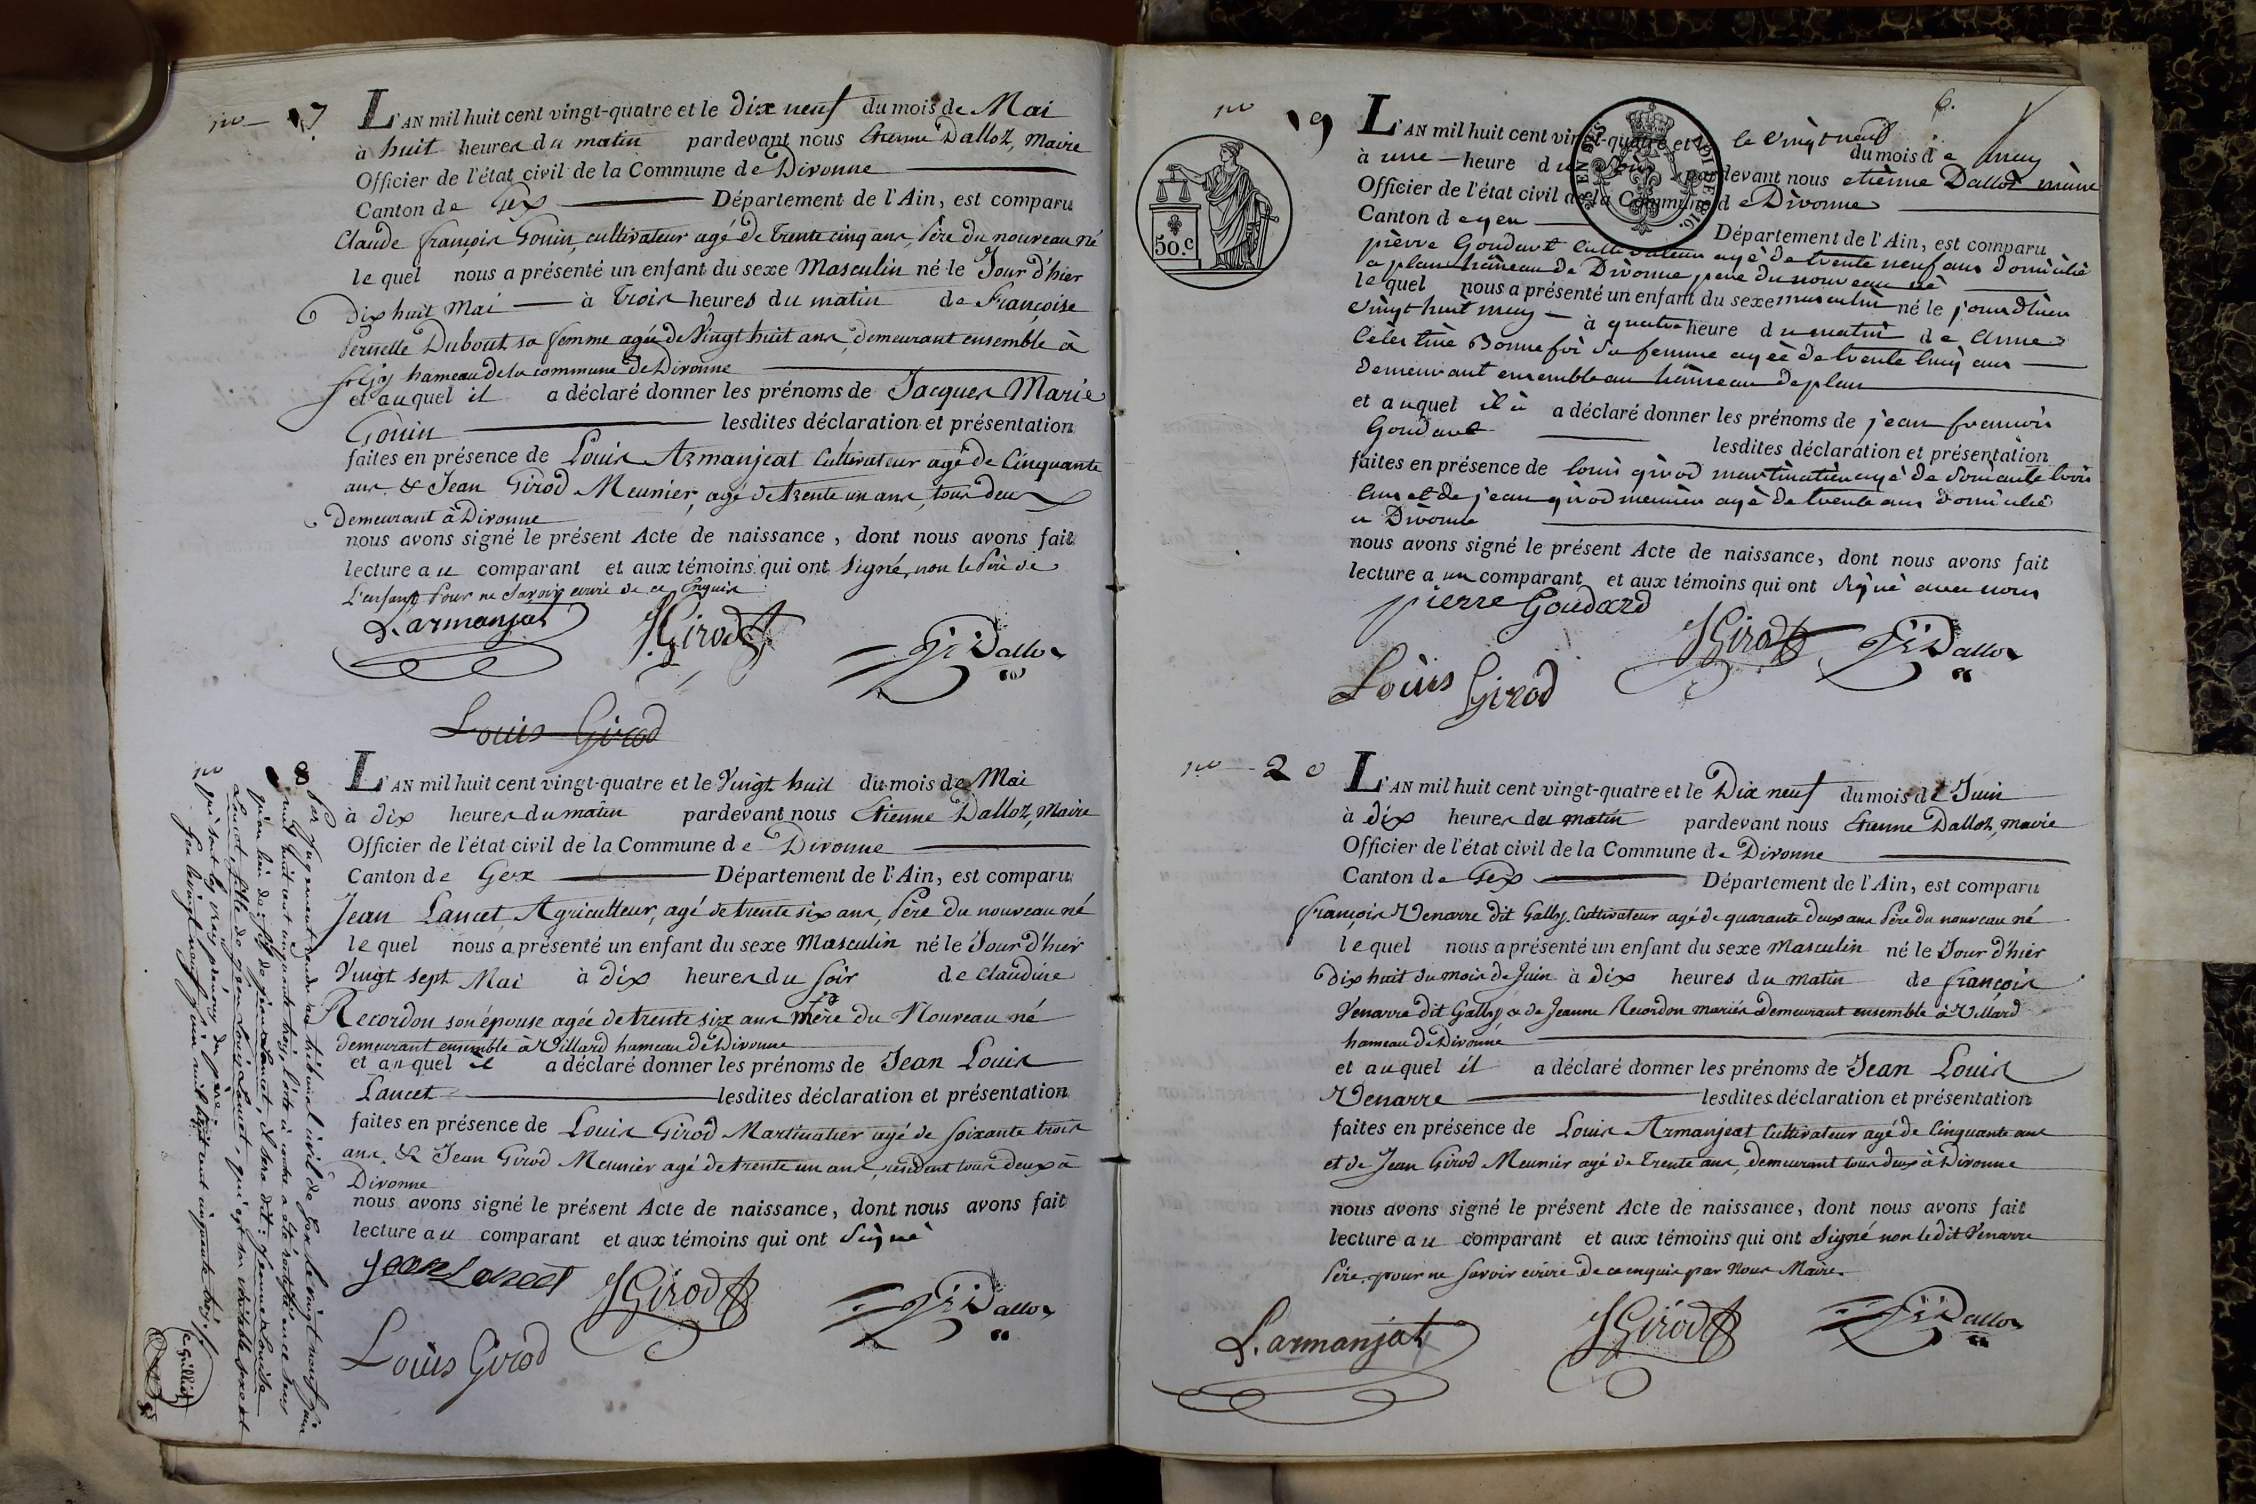 no 17
L'AN mil huit cent vingt-quatre et le dix neuf du mois de Mai
à huit heures du matin pardevant nous Etienne Dalloz, Maire
Officier de l'état civil de la Commune de Divonne
Canton de Gex Département de l'Ain, est comparu
Claude françois Gouin, cultivateur agé de trente cinq ans, Père du nouveau né
le quel nous a présenté un enfant du sexe Masculin né le Jour d'hier
dix huit Mai à trois heures du matin de Françoise
Pernette Dubout sa femme agée de Vingt huit ans, demeurant ensemble à
hameau de la commune de Divonne
et auquel il a déclaré donner les prénoms de Jacques Marie
Gouin lesdites déclaration et présentation
faites en présence de Louis Armanjeat Cultivateur agé de Cinquante
ans & Jean Girod Meunier, agé de trente un ans, tous deux
demeurant à Divonne
nous avons signé le présent Acte de naissance, dont nous avons fait
lecture au comparant et aux témoins qui ont Signé, non le Père de
L'enfant Pour ne Savoir ecrire de ce Enquis
L. armanjat JGirod Dalloz
Louis Girod
no 18
L'AN mil huit cent vingt-quatre et le Vingt huit du mois de Mai
à dix heures du matin pardevant nous Etienne Dalloz, Maire
Officier de l'état civil de la Commune de Divonne
Canton de Gex Département de l'Ain, est comparu
Jean Lancet, Agriculteur, agé de trente six ans, Père du nouveau né
le quel nous a présenté un enfant du sexe Masculin né le Jour d'hier
Vingt sept Mai à dix heures du soir de claudine
Recordon son épouse agée de trente six ans mère du Nouveau né
demeurant ensemble à Villard hameau de Divonne
et auquel il a déclaré donner les prénoms de Jean Louis
Lancet lesdites déclaration et présentation
faites en présence de Louis Girod Martinatier agé de soixante trois
ans & Jean Girod Meunier agé de trente un ans, résidant tous deux à
Divonne
nous avons signé le présent Acte de naissance, dont nous avons fait
lecture au comparant et aux témoins qui ont Signé
Jean Lancet JGirod Dalloz
Louis Girod
Par Jugement rendu au tribunal civil de Gex le vingt neuf Juin
mil huit cent cinquante trois, l'acte ci contre a été rectifié en ce sens
qu'au lieu de: fils de Jean Lancet, il sera dit: Jeanne Louise
Lancet, fille de Jean Louis Lancet, qui est son véritable sexe et
qui sont les vrais prénoms du père.
Gex le vingt neuf Juin mil huit cent cinquante trois.
6.
no 19
50.c
L'AN mil huit cent vingt-quatre et le vingt neuf du mois de may
à une heure du Soir pardevant nous etiènne Dalloz maire
Officier de l'état civil de la Commune de Divonne
Canton de gex Département de l'Ain, est comparu
pièrre Goudart Cultivateur agé de trente neuf ans domicilié
a plan hâmeau de Divonne père du nouveau né
le quel nous a présenté un enfant du sexe masculin né le jour dhier
vingt huit may à quatre heure du matin de Anne
Célestine Bonnefoi sa femme agée de trente cinq ans
demeurant ensemble au hâmeau de plan
et auquel il a a déclaré donner les prénoms de jean francois
Goudart lesdites déclaration et présentation
faites en présence de louis girod martinatier agé de soixante trois
ans et de jean girod meunier agé de trente ans domicilié
a Divonne
nous avons signé le présent Acte de naissance, dont nous avons fait
lecture au comparant et aux témoins qui ont signé avec nous
pierre Goudard
JGirod Dalloz
Louis Girod
no 20
L'AN mil huit cent vingt-quatre et le Dix neuf du mois de Juin
à dix heures du matin pardevant nous Etienne Dalloz, Maire
Officier de l'état civil de la Commune de Divonne
Canton de Gex Département de l'Ain, est comparu
françois Venarre dit Gally, Cultivateur agé de quarante deux ans Père du nouveau né
le quel nous a présenté un enfant du sexe Masculin né le Jour d'hier
dix huit du mois de Juin à dix heures du matin de françois
Venarre dit Gally & de Jeanne Recordon mariés demeurant ensemble à Villard
hameau de Divonne
et auquel il a déclaré donner les prénoms de Jean Louis
Venarre lesdites déclaration et présentation
faites en présence de Louis Armanjeat Cultivateur agé de Cinquante ans
et de Jean Girod Meunier agé de Trente ans, demeurant tous deux à Divonne
nous avons signé le présent Acte de naissance, dont nous avons fait
lecture au comparant et aux témoins qui ont Signé non le dit Venarre
Père, pour ne savoir ecrire de ce enquis par Nous Maire.
L. armanjat JGirod Dalloz